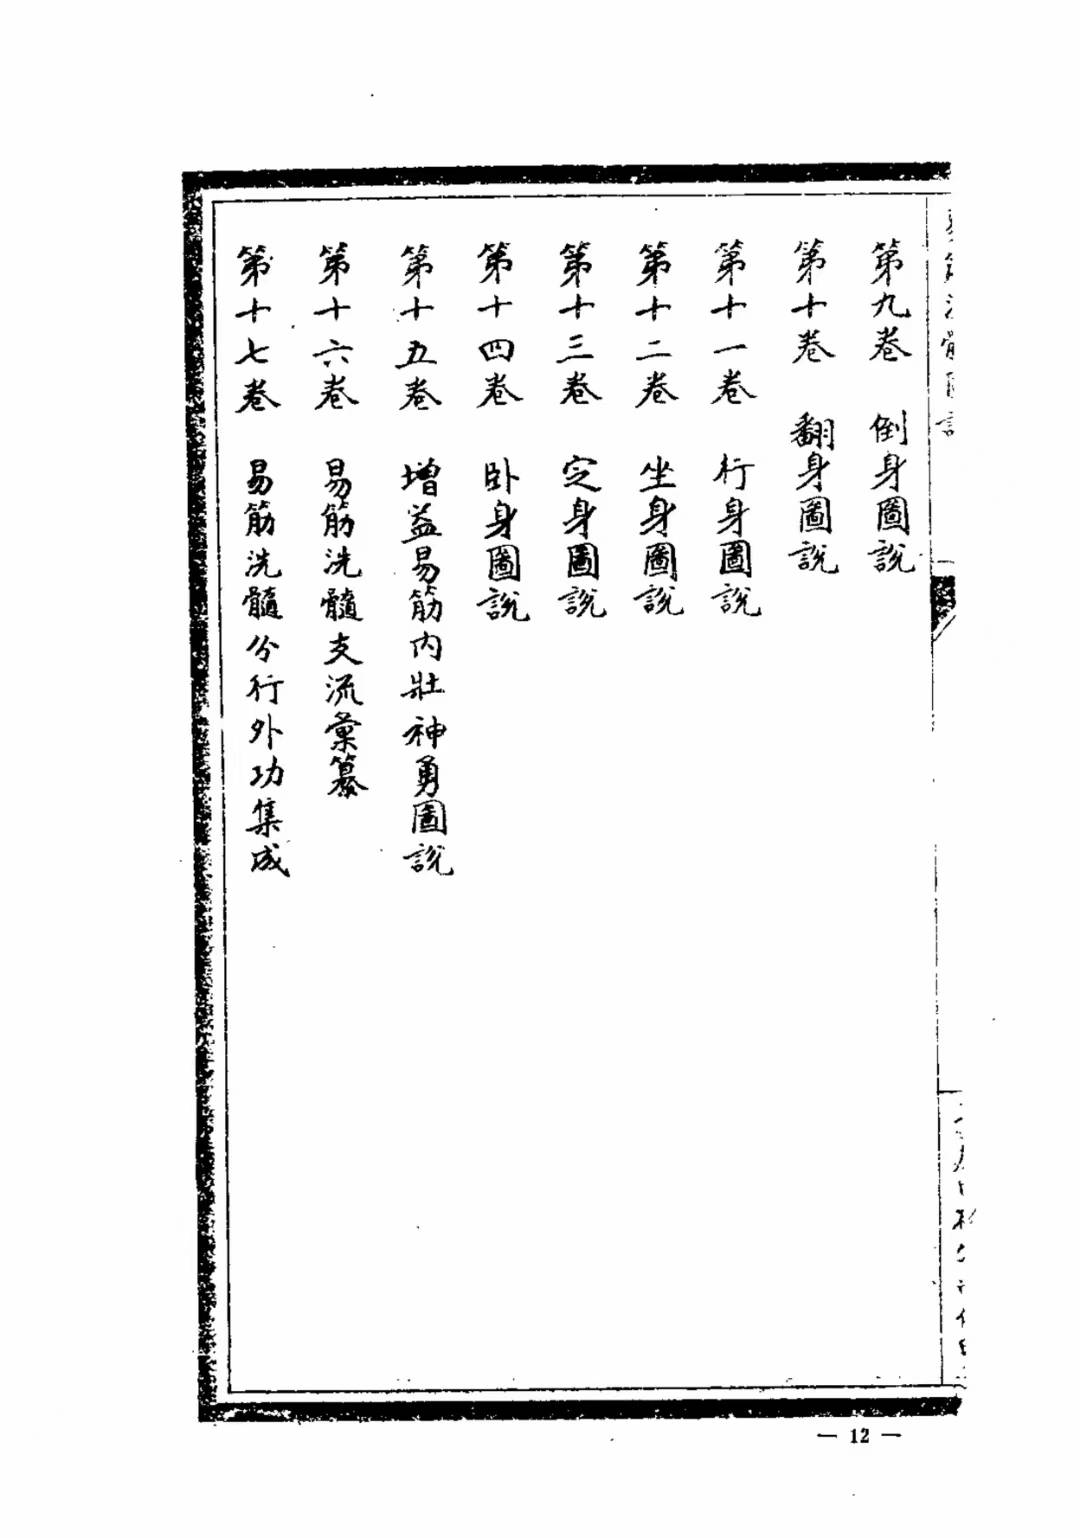 第九卷 倒身圖說
第十卷 翻身圖說
第十一卷 行身圖說
第十二卷 坐身圖說
第十三卷 定身圖說
第十四卷 卧身圖說
第十五卷 增益易筋內壯神勇圖說
第十六卷 易筋洗髓支流彙纂
第十七卷 易筋洗髓分行外功集成
— 12 —